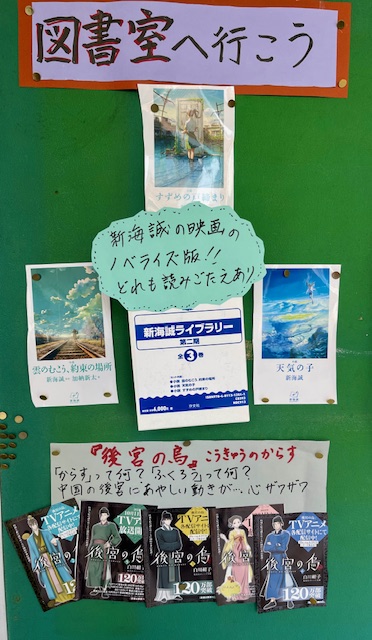 図書室へ行こう
すずめの戸締まり
新海誠の映画の
ノベライズ版!!
どれも読みごたえあり
新海誠ライブラリー
第二期
全3巻
汐文社
雲のむこう、約束の場所
新海誠= 加納新太=
天気の子
新海誠
『後宮の烏』こうきゅうのからす
「からす」って何?「ふくろう」って何?
中国の後宮にあやしい動きが…心ザワザワ
TVアニメ
各配信サイトにて
配信中!
後宮の烏
白川紺子
120万部
TVアニメ
放送開
後宮の烏
白川紺子
120万部
後宮の烏
白川紺子
120万部
突破
後宮の烏
白川紺子
TVアニメ
各配信サイトにて
配信中!
後宮の烏
白川紺子
120万部